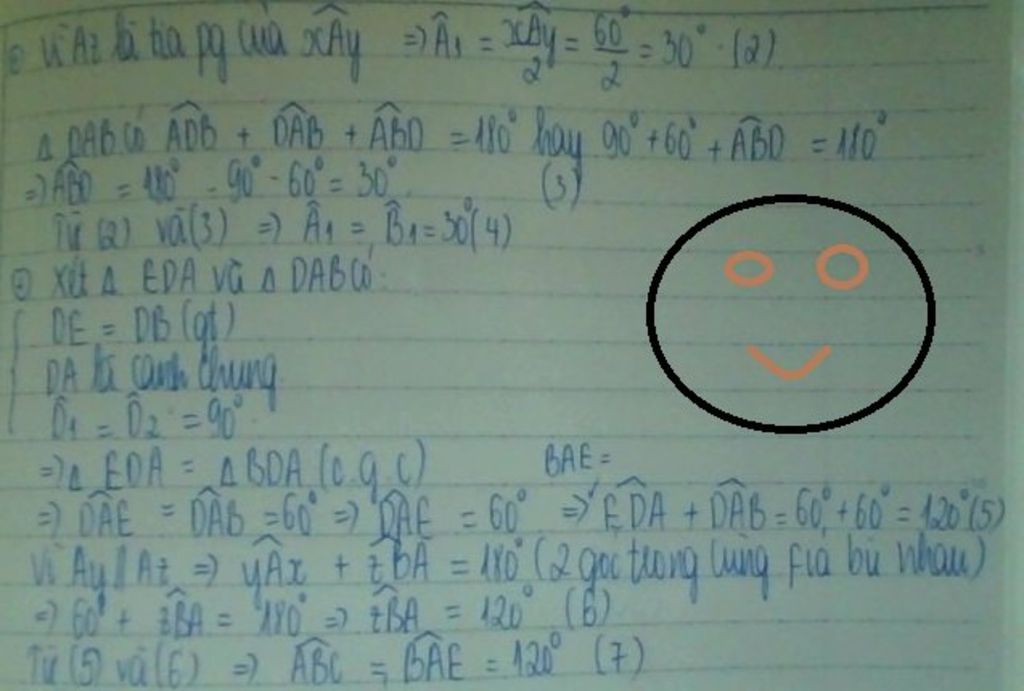 ⊕ Vì Az là tia pg của xÂy ⇒ Â₁ = xÂy/2 = 60°/2 = 30° (2)
Δ DAB có ADB + DAB + ABD = 180° hay 90° + 60° + ABD = 180°
⇒ ABD = 180° - 90° - 60° = 30° (3)
Từ (2) và (3) ⇒ Â₁ = B̂₁ = 30° (4)
⊕ Xét Δ EDA và Δ DAB có
DE = DB (gt)
DA là cạnh chung
D̂₁ = D̂₂ = 90°
⇒ Δ EDA = Δ BDA (c.g.c) BAE =
⇒ DAE = DAB = 60° ⇒ DAE = 60° ⇒ EDA + DAB = 60° + 60° = 120° (5)
Vì Ay // Az ⇒ yÂx + zBA = 180° (2 góc trong cùng fía bù nhau)
⇒ 60° + zBA = 180° ⇒ zBA = 120° (6)
Từ (5) và (6) ⇒ ABC = BAE = 120° (7)